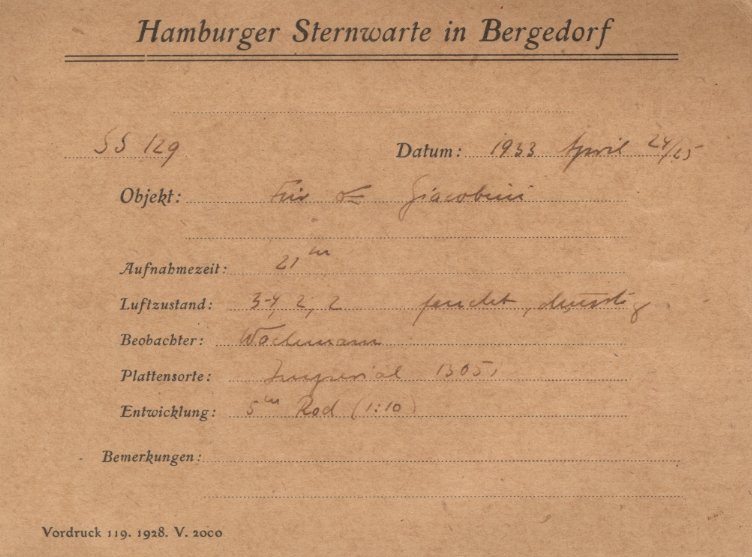 Hamburger Sternwarte in Bergedorf
SS 129 Datum: 1933 April 24/25
Objekt: Für Giacobini
Aufnahmezeit: 21 m
Luftzustand: 3-4, 2, 2 feucht, dunstig
Beobachter: Wachmann
Plattensorte: Imperial 1305
Entwicklung: 5 m Rod (1:10)
Bemerkungen:
Vordruck 119. 1928. V. 2000